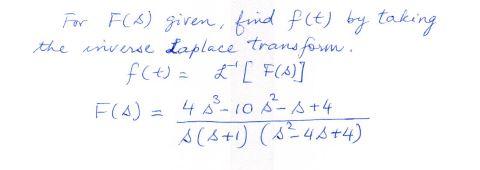 For F(s) given, find f(t) by taking
the inverse Laplace transform.
f(t) = ℒ⁻¹[F(s)]
F(s) = 4s³-10s²-s+4
s(s+1)(s²-4s+4)